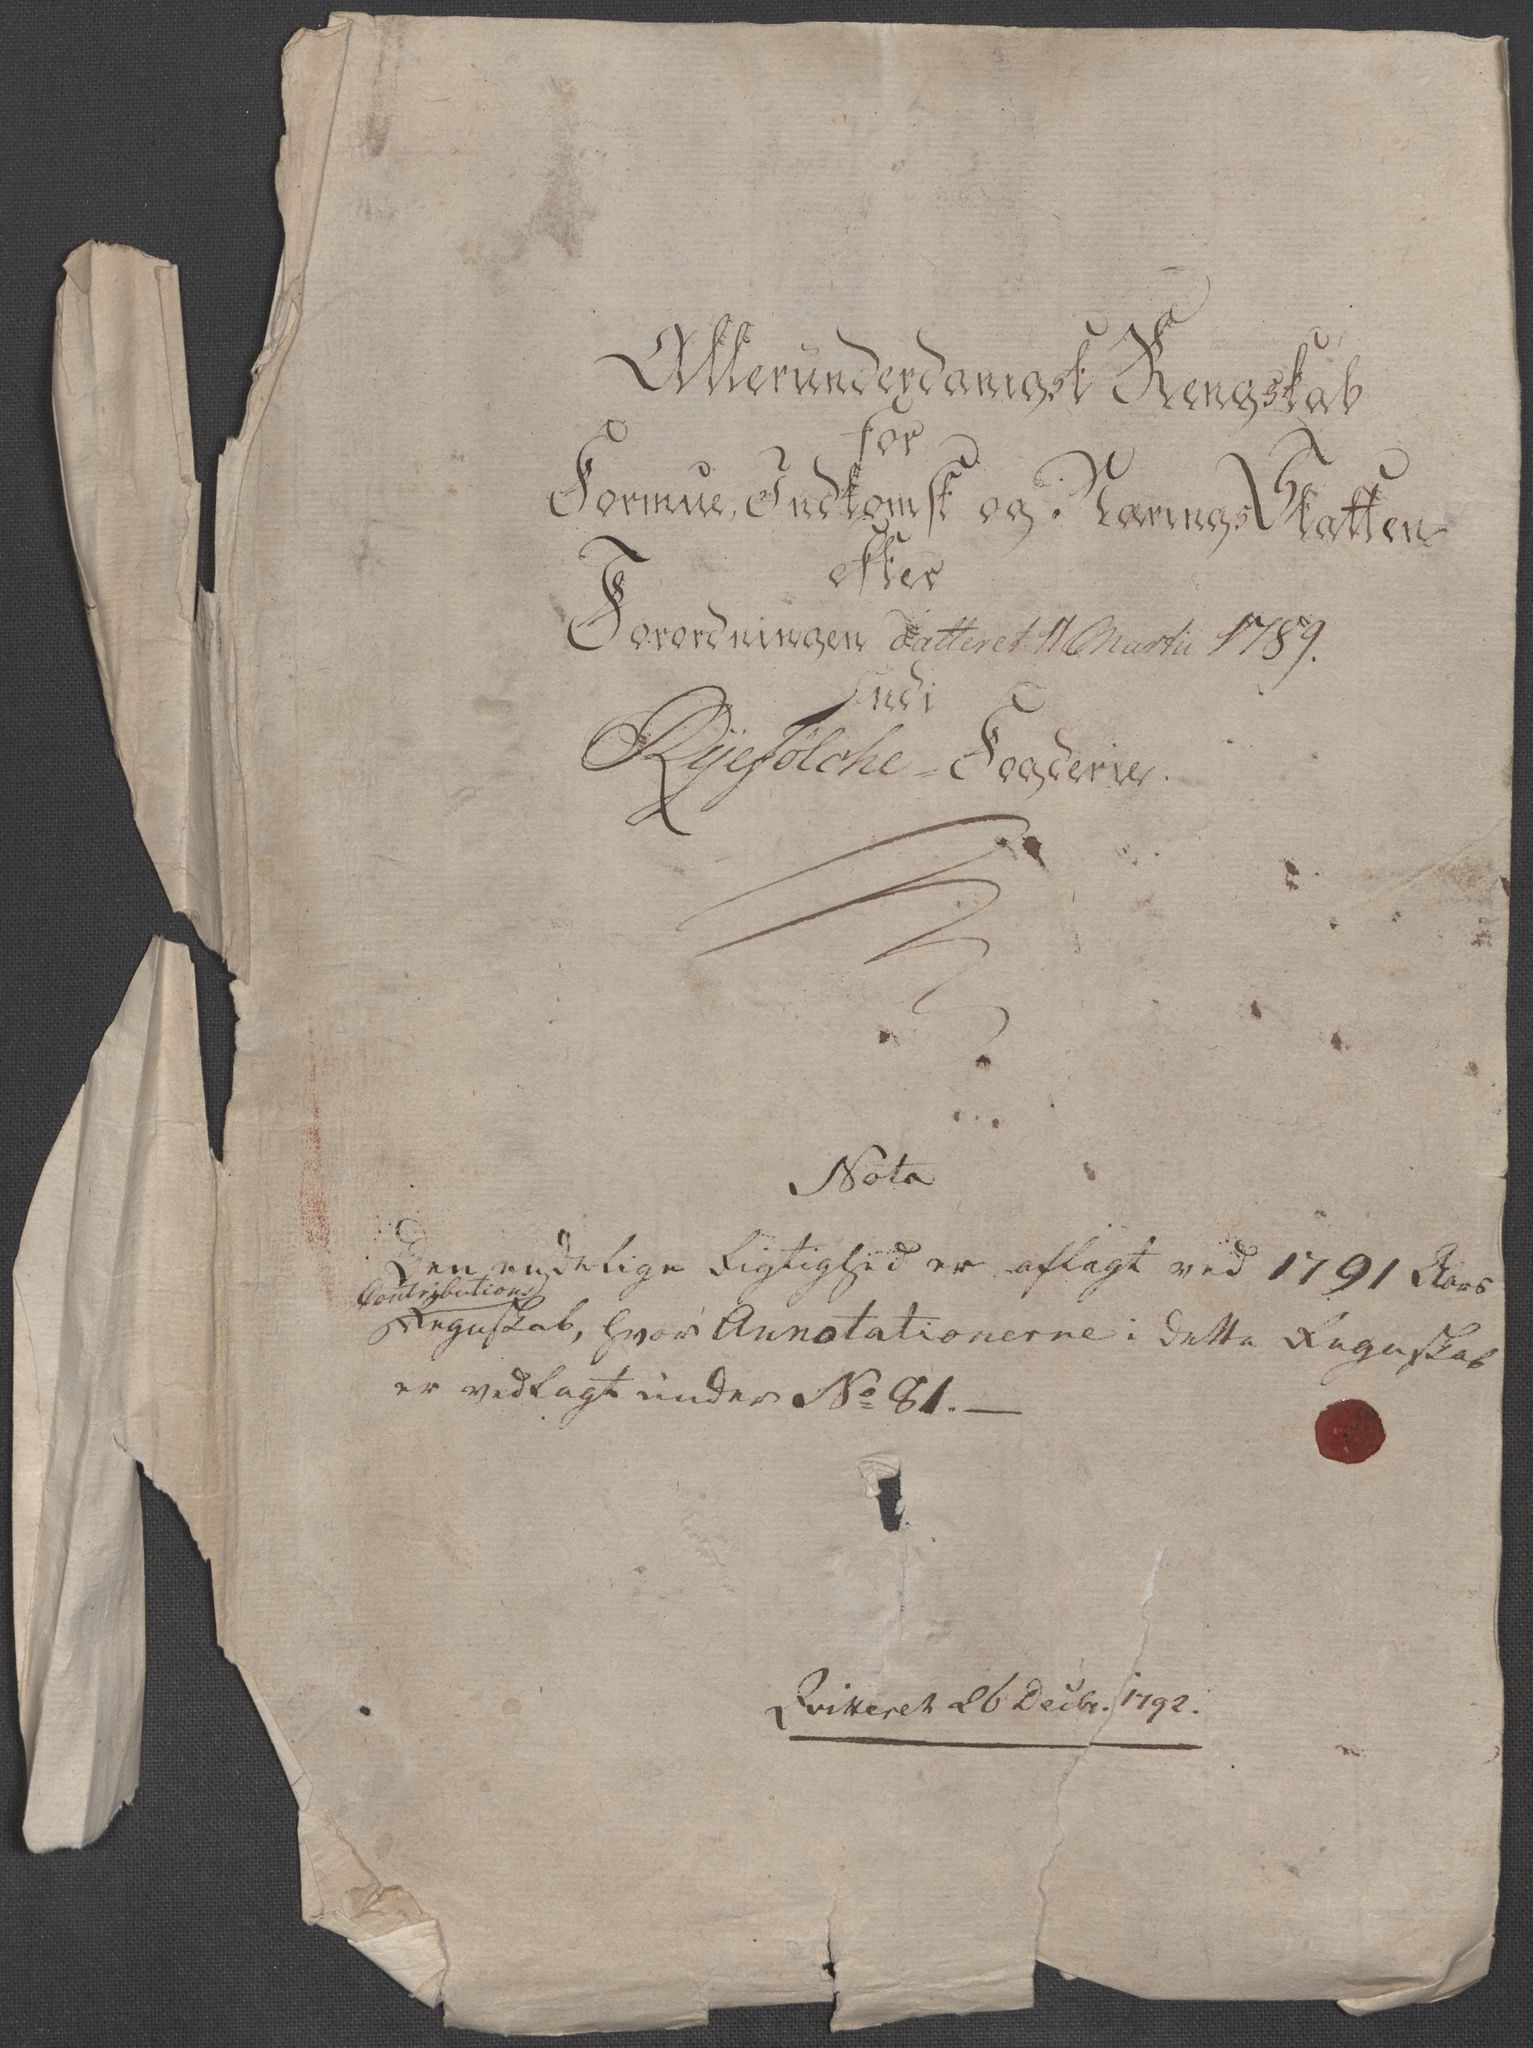 Allerunderdanigst Rengskab
for
Formue, Indkomst og Nærings Skatten
efter
Forordningen datteret 11 Martii 1789.
udi
Ryefölche - Fogderie.
Nota
Den endelige Rigtighed er aflagt ved 1791 Aars
Contributions
Regnskab, hvor Annotationerne i dette Regnskab
er vedlagt under No 81. —
Qvitteret 26 Decbr. 1792.